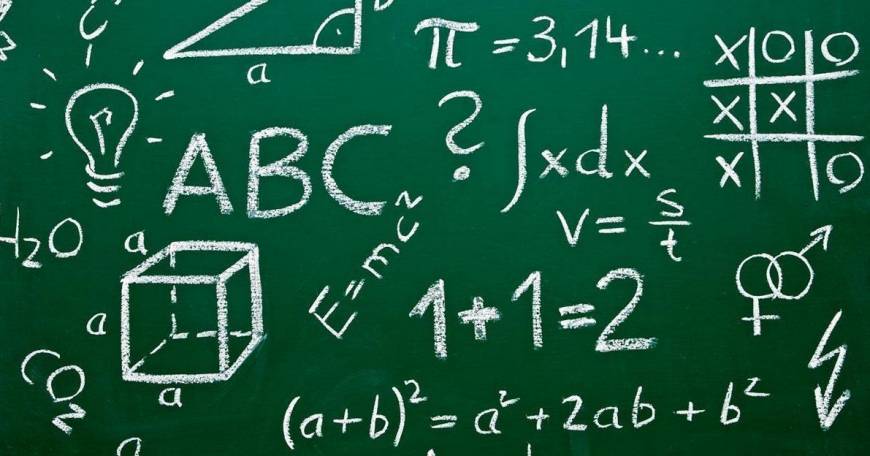 a
π = 3,14...
X O O
X X
X O
?
ABC
∫xdx
v = s/t
H₂O
a
a
a
E=mc²
1+1=2
CO₂
(a+b)² = a² + 2ab + b²
a